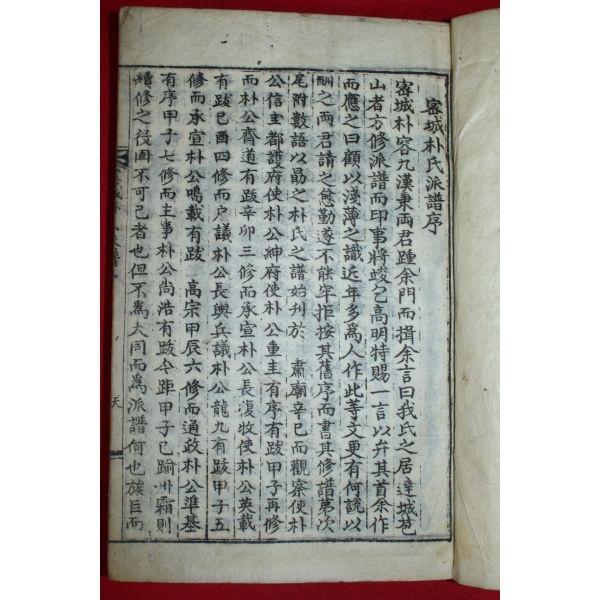 密城朴氏派譜序
密城朴容九漢秉両君踵余門而揖余言曰我氏之居達城苞
山者方修派譜而印事將竣乞高明特賜一言以弁其首余作
而應之曰顧以淺薄之識近年多為人作此等文更有何說以
酬之両君請之慇勤遂不能牢拒按其舊序而書其修譜第次
尾附數語以勗之朴氏之譜始刊於 肅廟辛巳而觀察使朴
公信圭都護府使朴公紳府使朴公重圭有序有跋甲子再修
而朴公齊道有跋辛卯三修而承宣朴公長復牧使朴公英載
有跋己酉四修而戶議朴公長興兵議朴公龍九有跋甲子五
修而承宣朴公鳴載有跋 高宗甲辰六修而通政朴公準基
有序甲子七修而主事朴公尚浩有跋今距甲子已踰卄霜則
續修之役固不可已者也但不為大同而為派譜何也族巨而
天